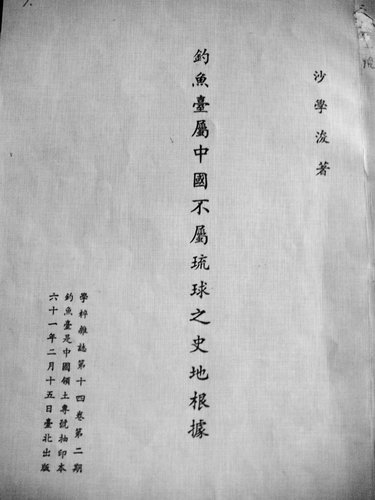 沙學浚著
釣魚臺屬中國不屬琉球之史地根據
學粹雜誌第十四卷第二期
釣魚臺是中國領土專號抽印本
六十一年二月十五日臺北出版